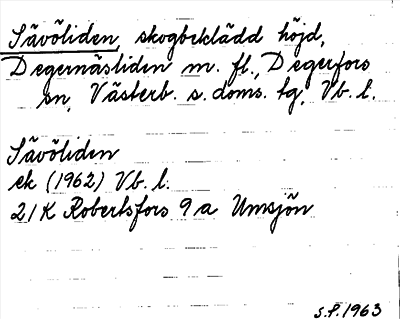 Sävöliden, skogbeklädd höjd,
Degernäsliden m. fl., Degerfors
sn, Västerb. s. doms. tg, Vb. l.
Sävöliden
ek (1962) Vb. l.
21K Robertsfors 9a Umsjön
S.P. 1963